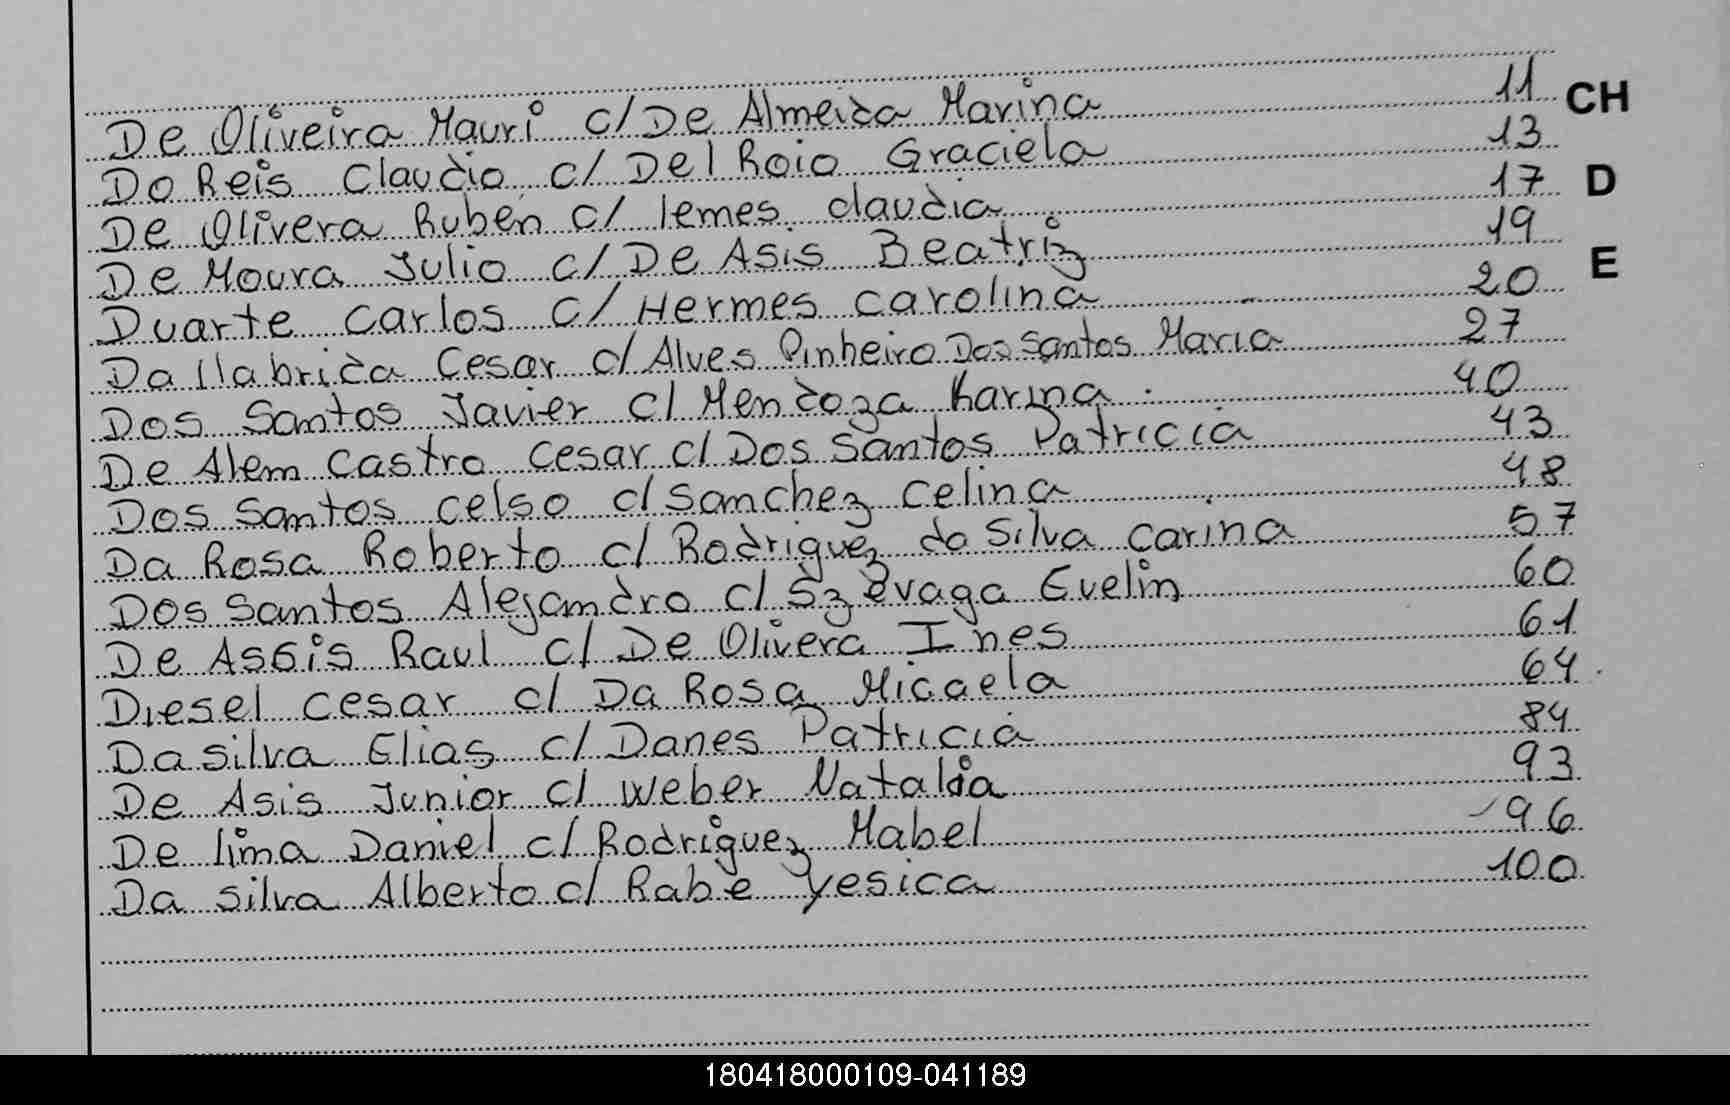 De Oliveira Mauri c/ De Almeida Marina 11
CH
Do Reis Claudio c/ Del Roio Graciela 13
De Olivera Ruben c/ lemes claudia 17
D
De Moura Julio c/ De Asis Beatriz 19
Duarte Carlos c/ Hermes Carolina 20
E
Dallabrida Cesar c/ Alves Pinheiro Dos Santos Maria 27
Dos Santos Javier c/ Mendoza Karina 40
De Alem Castro Cesar c/ Dos Santos Patricia 43
Dos Santos Celso c/ Sanchez Celina 48
Da Rosa Roberto c/ Rodriguez da Silva Carina 57
Dos Santos Alejandro c/ Evelin 60
De Assis Raul c/ De Olivera Ines 61
Diesel Cesar c/ Da Rosa Micaela 64
Da Silva Elias c/ Danes Patricia 84
De Asis Junior c/ Weber Natalia 93
De lima Daniel c/ Rodriguez Mabel 96
Da Silva Alberto c/ Rabe Yesica 100
180418000109-041189